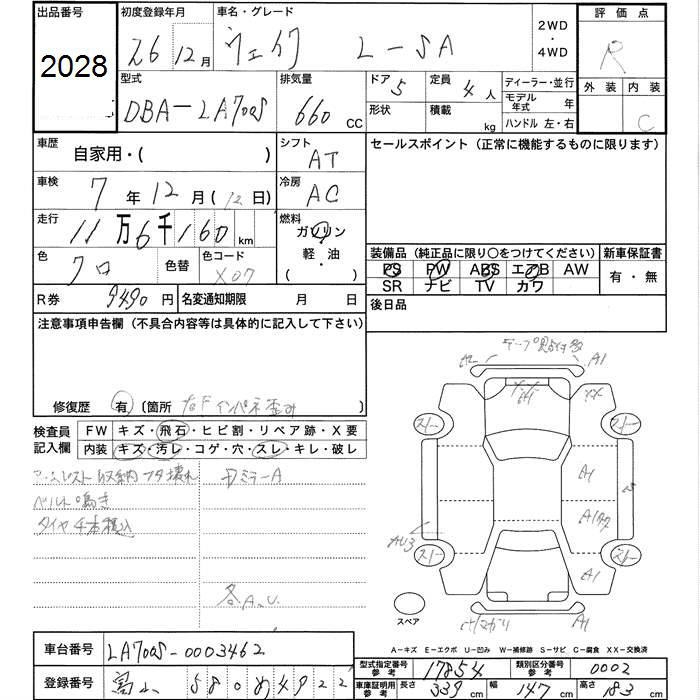 出品番号 初度登録年月 車名・グレード 2WD・4WD 評価点
2028 26 12月 ウェイク L-SA R
型式 排気量 ドア 5 定員 4人 ディーラー・並行 外装 内装
DBA-LA700S 660 CC 形状 積載 kg モデル年式 年 C
ハンドル 左・右
車歴 自家用・( ) シフト AT セールスポイント(正常に機能するものに限ります)
車検 7年12月(12日) 冷房 AC
走行 11万6千160km 燃料 ガソリン・軽・油 ( )
色 クロ 色替 色コード X07
装備品(純正品に限り○をつけてください) 新車保証書
PS PW ABS エアB AW 有・無
SR ナビ TV カワ
R券 9490円 名変通知期限 月 日 後日品
注意事項申告欄(不具合内容等は具体的に記入して下さい)
修復歴 有 〔箇所 インパネ
検査員記入欄 FW キズ・飛石・ヒビ割・リペア跡・X要
内装 キズ・汚レ・コゲ・穴・スレ・キレ・破レ
アームレスト収納フタ壊れ
ベルト鳴き
タイヤ4本積込
A1 XX
A1
A1
A1
A1
スペア
A-キズ E-エクボ U-凹み W-補修跡 S-サビ C-腐食 XX-交換済
車台番号 LA700S-0003462
型式指定番号 参考 17854 類別区分番号 参考 0002
登録番号 富山 580 め 4922
車庫証明用 参考 長さ 339cm 幅 147cm 高さ 183cm